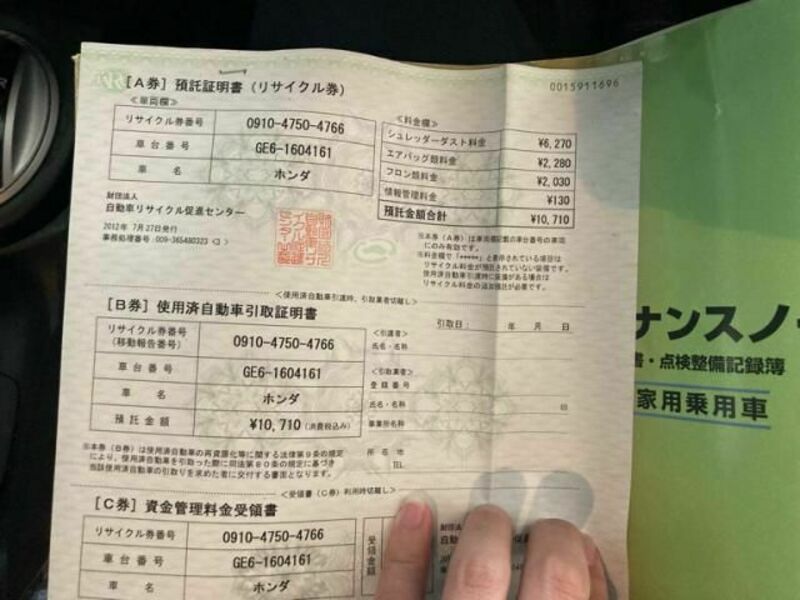 0015911696
[A券] 預託証明書 (リサイクル券)
<車両欄>
リサイクル券番号 0910-4750-4766
車台番号 GE6-1604161
車名 ホンダ
<料金欄>
シュレッダーダスト料金 ¥6,270
エアバッグ類料金 ¥2,280
フロン類料金 ¥2,030
情報管理料金 ¥130
預託金額合計 ¥10,710
財団法人
自動車リサイクル促進センター
2012年 7月27日発行
事務処理番号 :009-365480323
※本券(A券)は車両欄記載の車台番号の車両
にのみ有効です。
※料金欄で「*****」と表示されている項目は
リサイクル料金が預託されていない装備です。
使用済自動車引渡時に装備がある場合は
リサイクル料金の追加預託が必要です。
<使用済自動車引渡時、引取業者切離し>
[B券] 使用済自動車引取証明書
リサイクル券番号
(移動報告番号) 0910-4750-4766
車台番号 GE6-1604161
車名 ホンダ
預託金額 ¥10,710 (消費税込み)
引取日: 年 月 日
<引渡者>
氏名・名称
<引取業者>
登録番号
氏名・名称 印
事業所名称
所在地
TEL
※本券(B券)は使用済自動車の再資源化等に関する法律第9条の規定
により、使用済自動車を引取った際に同法第80条の規定に基づき
当該使用済自動車の引取りを求めた者に交付する書面となります。
<受領書(C券)利用時切離し>
[C券] 資金管理料金受領書
リサイクル券番号 0910-4750-4766
車台番号 GE6-1604161
車名 ホンダ
受領金額
財団法人
自動
ナンスノー
・点検整備記録簿
家用乗用車